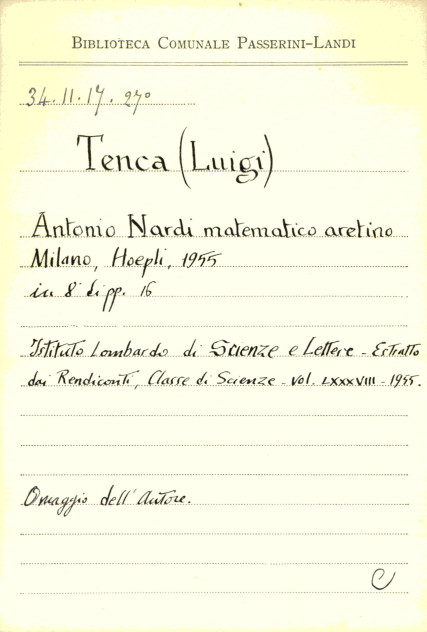 BIBLIOTECA COMUNALE PASSERINI-LANDI
34.II.17.27°
Tenca (Luigi)
Antonio Nardi matematico aretino
Milano, Hoepli, 1955
in 8° di pp. 16
Istituto Lombardo di Scienze e Lettere - Estratto
dai Rendiconti, Classe di Scienze - Vol. LXXXVIII - 1955.
Omaggio dell'Autore.
C